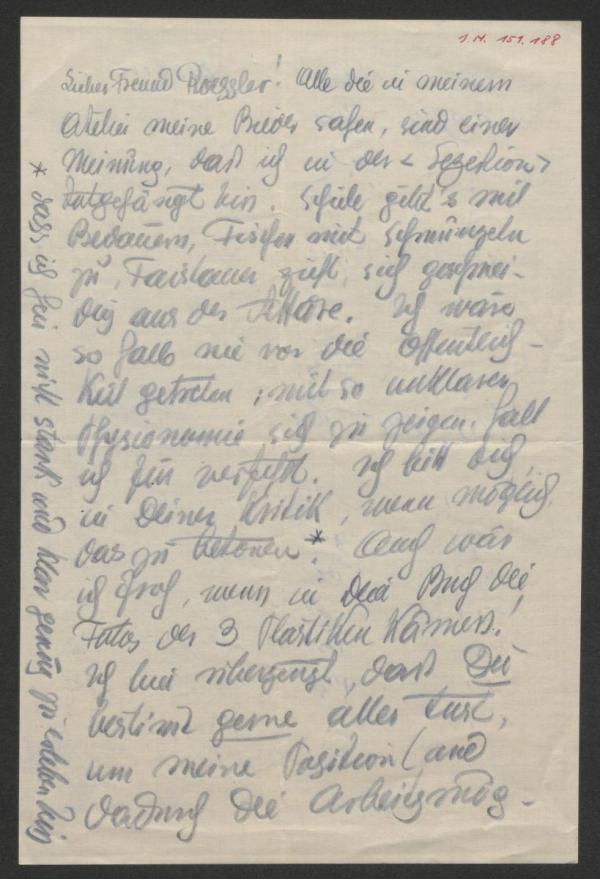 I.N. 151.188
Lieber Freund Roessler! Alle die in meinem
Atelier meine Bilder sahen, sind einer
Meinung, daß ich in der < Sezession >
bin. Schiele gibt's mit
Bedauern, Fischer mit Schmunzeln
zu, Faistauer zieht sich geschmei-
dig aus der Affäre. Ich wäre
so halb nie vor die Öffentlich-
keit getreten; mit so unklarer
Physionomie sich zu zeigen, halt
ich für verfehlt. Ich bitt dich,
in Deiner Kritik, wenn möglich
das zu betonen*. Auch wär
ich froh, wenn in dein Buch die
Fotos der 3 Plastiken kämen!
Ich bin überzeugt, daß Du
bestimmt gerne alles tust,
um meine Position (und
dadurch die Arbeitsmög-
* dass ich hier nicht stark und klar genug zu erleben bin